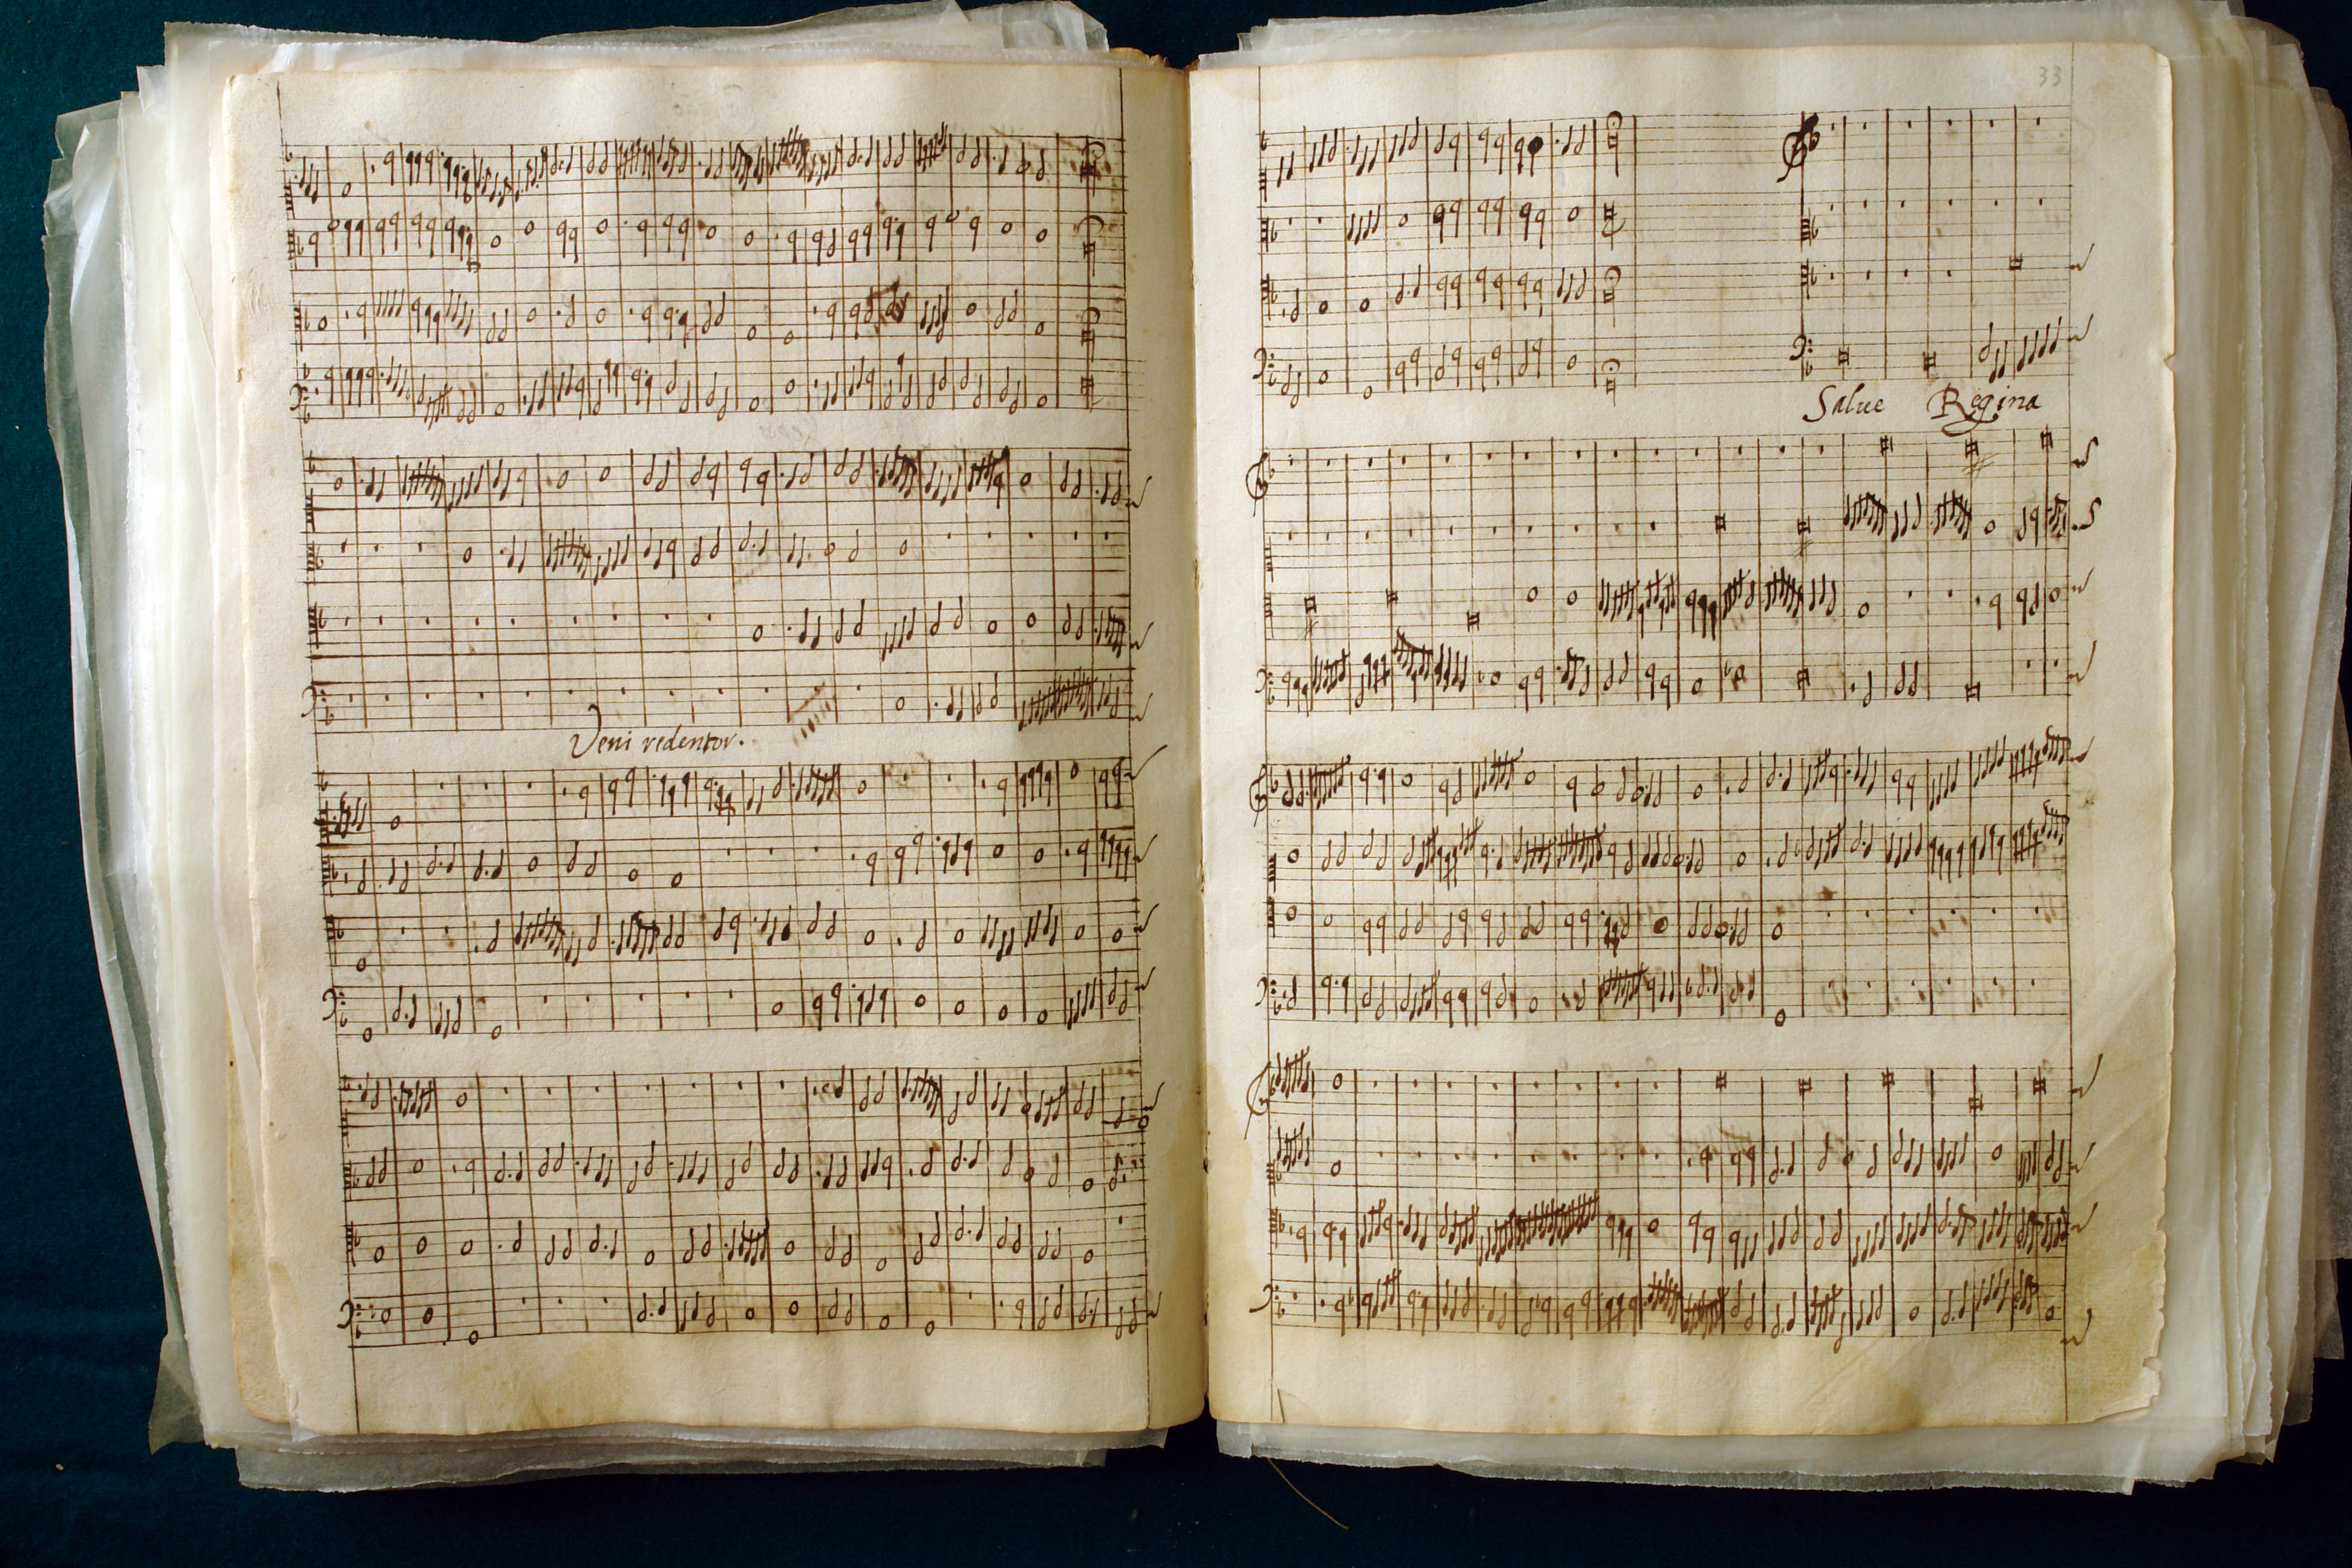 Veni redentor.
33
Salue Regina